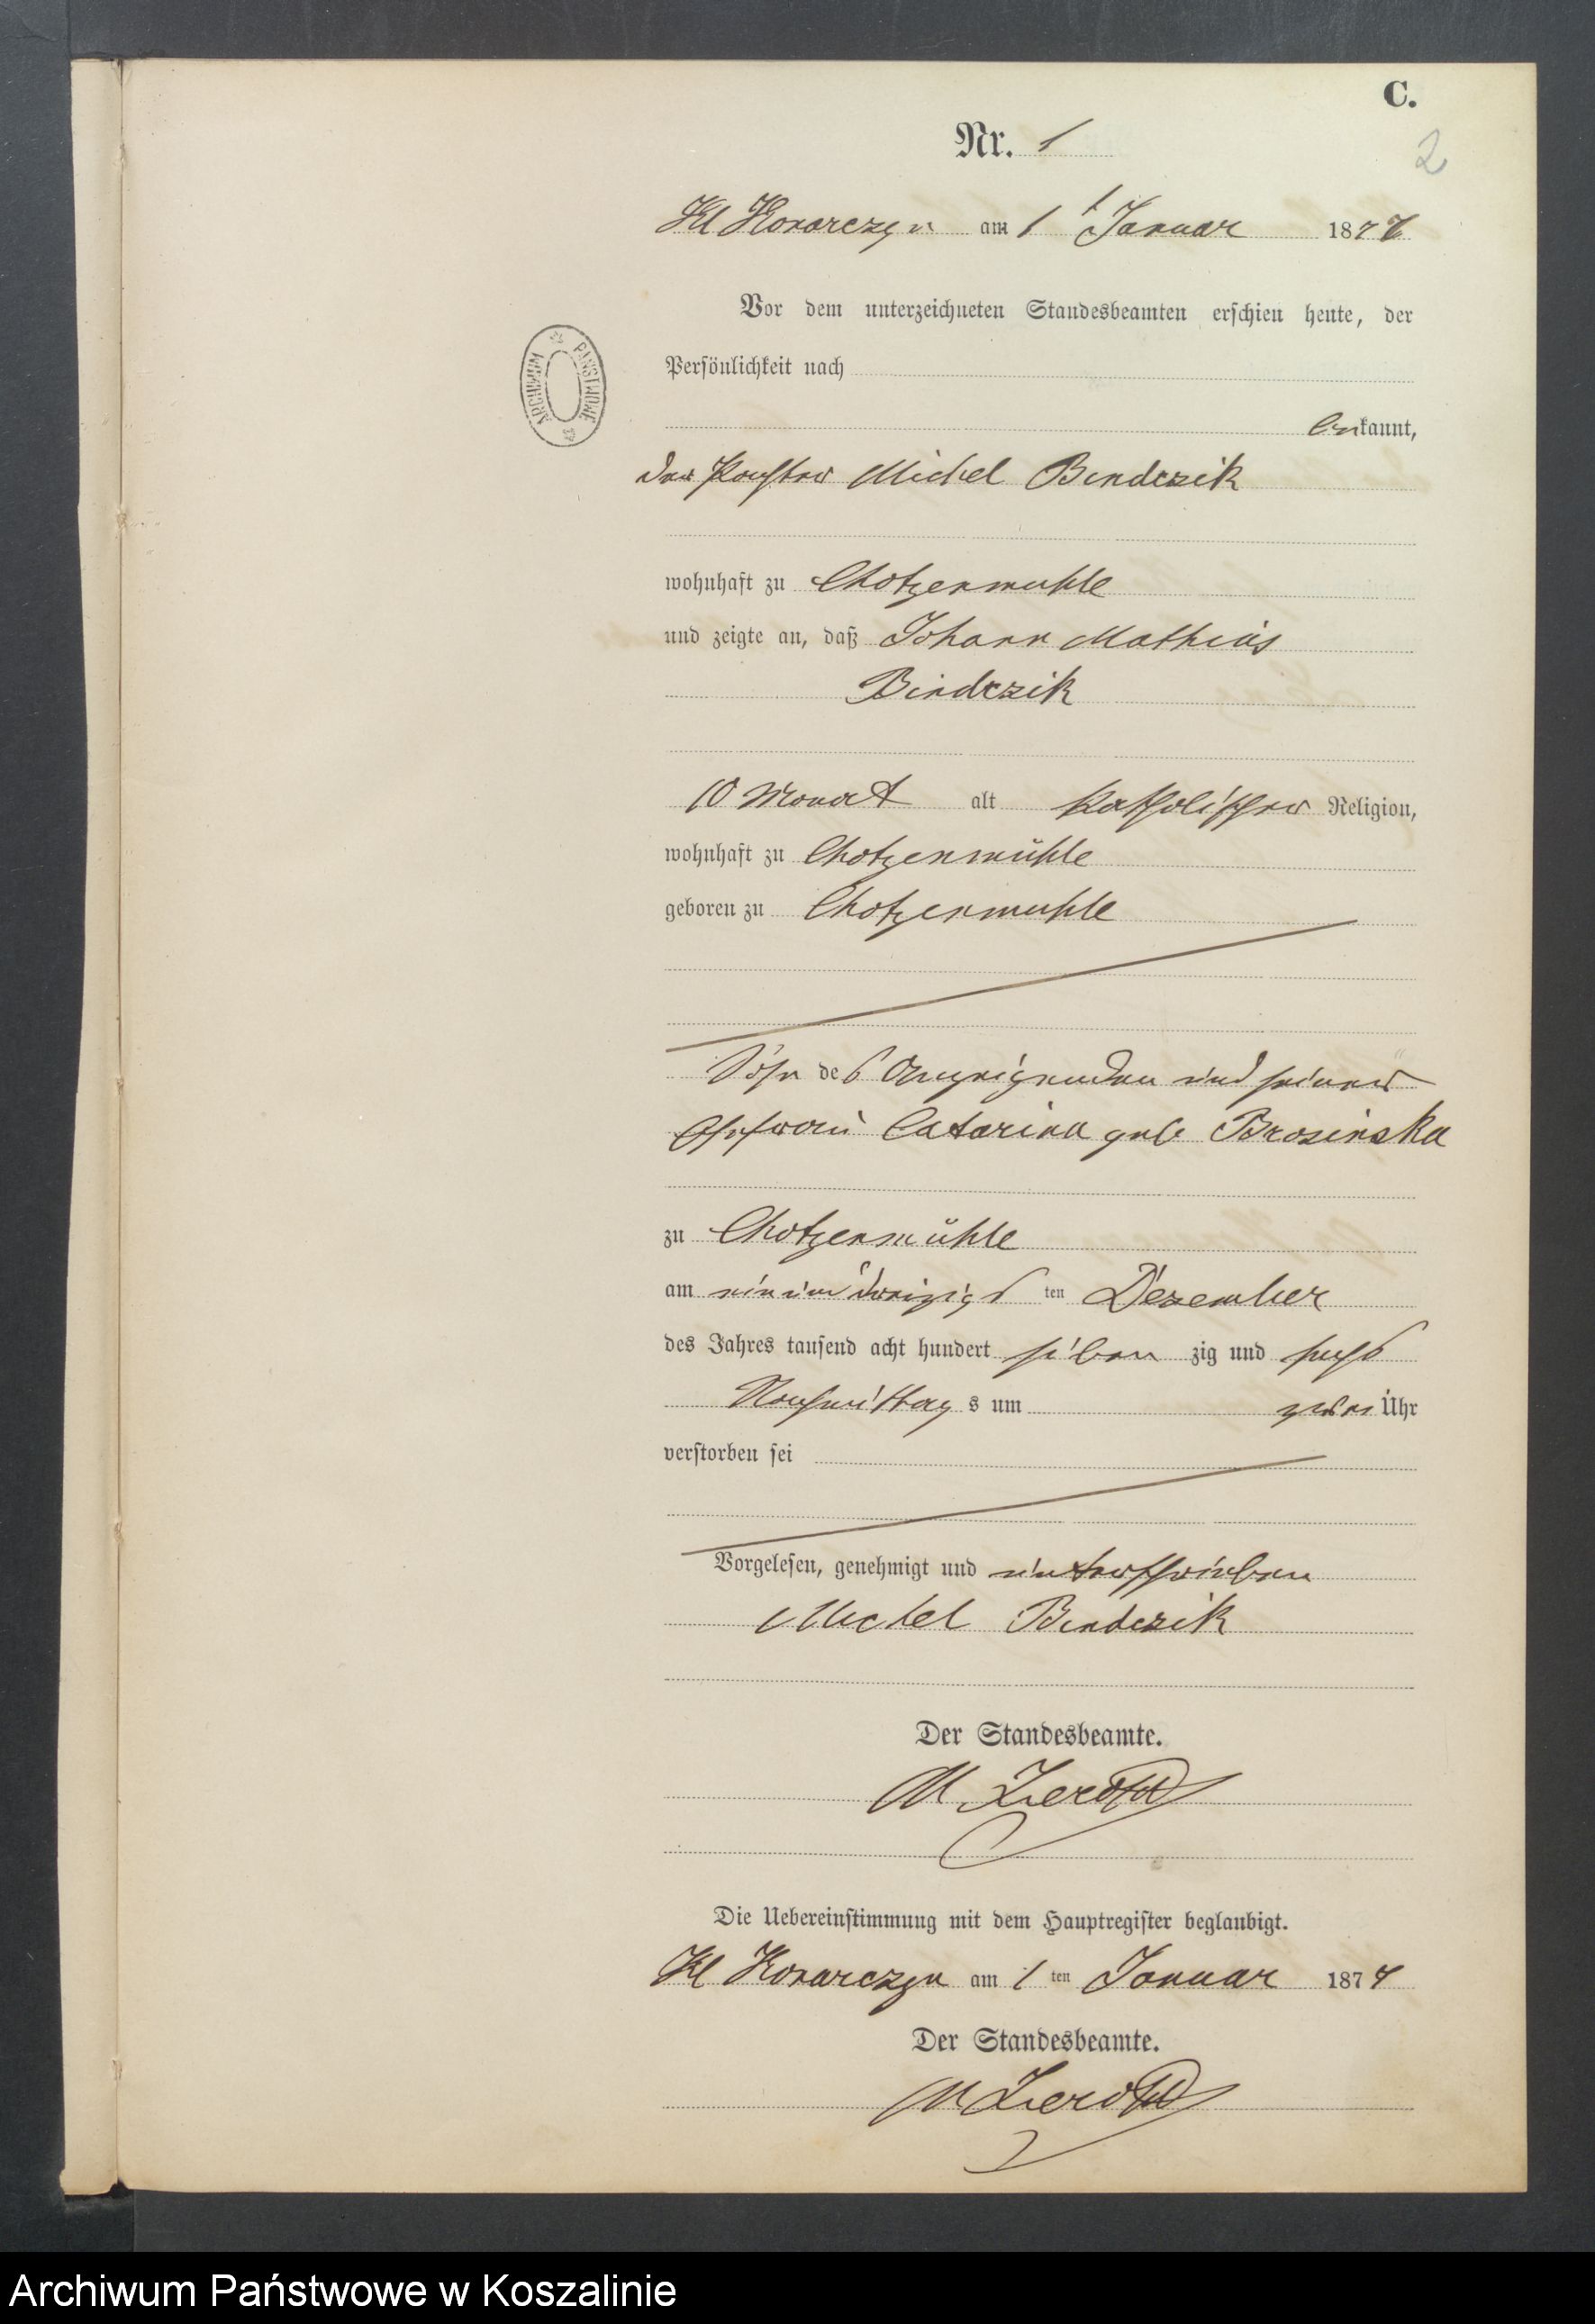 C.
Nr. 1
2
Kl Konarczyn am 1t Januar 1877
Vor dem unterzeichneten Standesbeamten erschien heute, der
Persönlichkeit nach
bekannt,
der Pächter Michel Bindczik
wohnhaft zu Chotzenmuhle
und zeigte an, daß Johann Mathias
Bindczik
10 Monat alt katholischer Religion,
wohnhaft zu Chotzenmühle
geboren zu Chotzenmuhle
Sohn des Anzeigenden und seiner
Ehefrau Catarina geb Brosinska
zu Chotzenmühle
am einunddreizigsten Dezember
des Jahres tausend acht hundert siebenzig und sechs
Nachmittags um zwei Uhr
verstorben sei
Vorgelesen, genehmigt und unterschrieben
Michel Bindczik
Der Standesbeamte.
M.
Die Uebereinstimmung mit dem Hauptregister beglaubigt.
Kl Konarczyn am 1ten Januar 1877
Der Standesbeamte.
M
ARCHIWUM PAŃSTWOWE
Archiwum Państwowe w Koszalinie